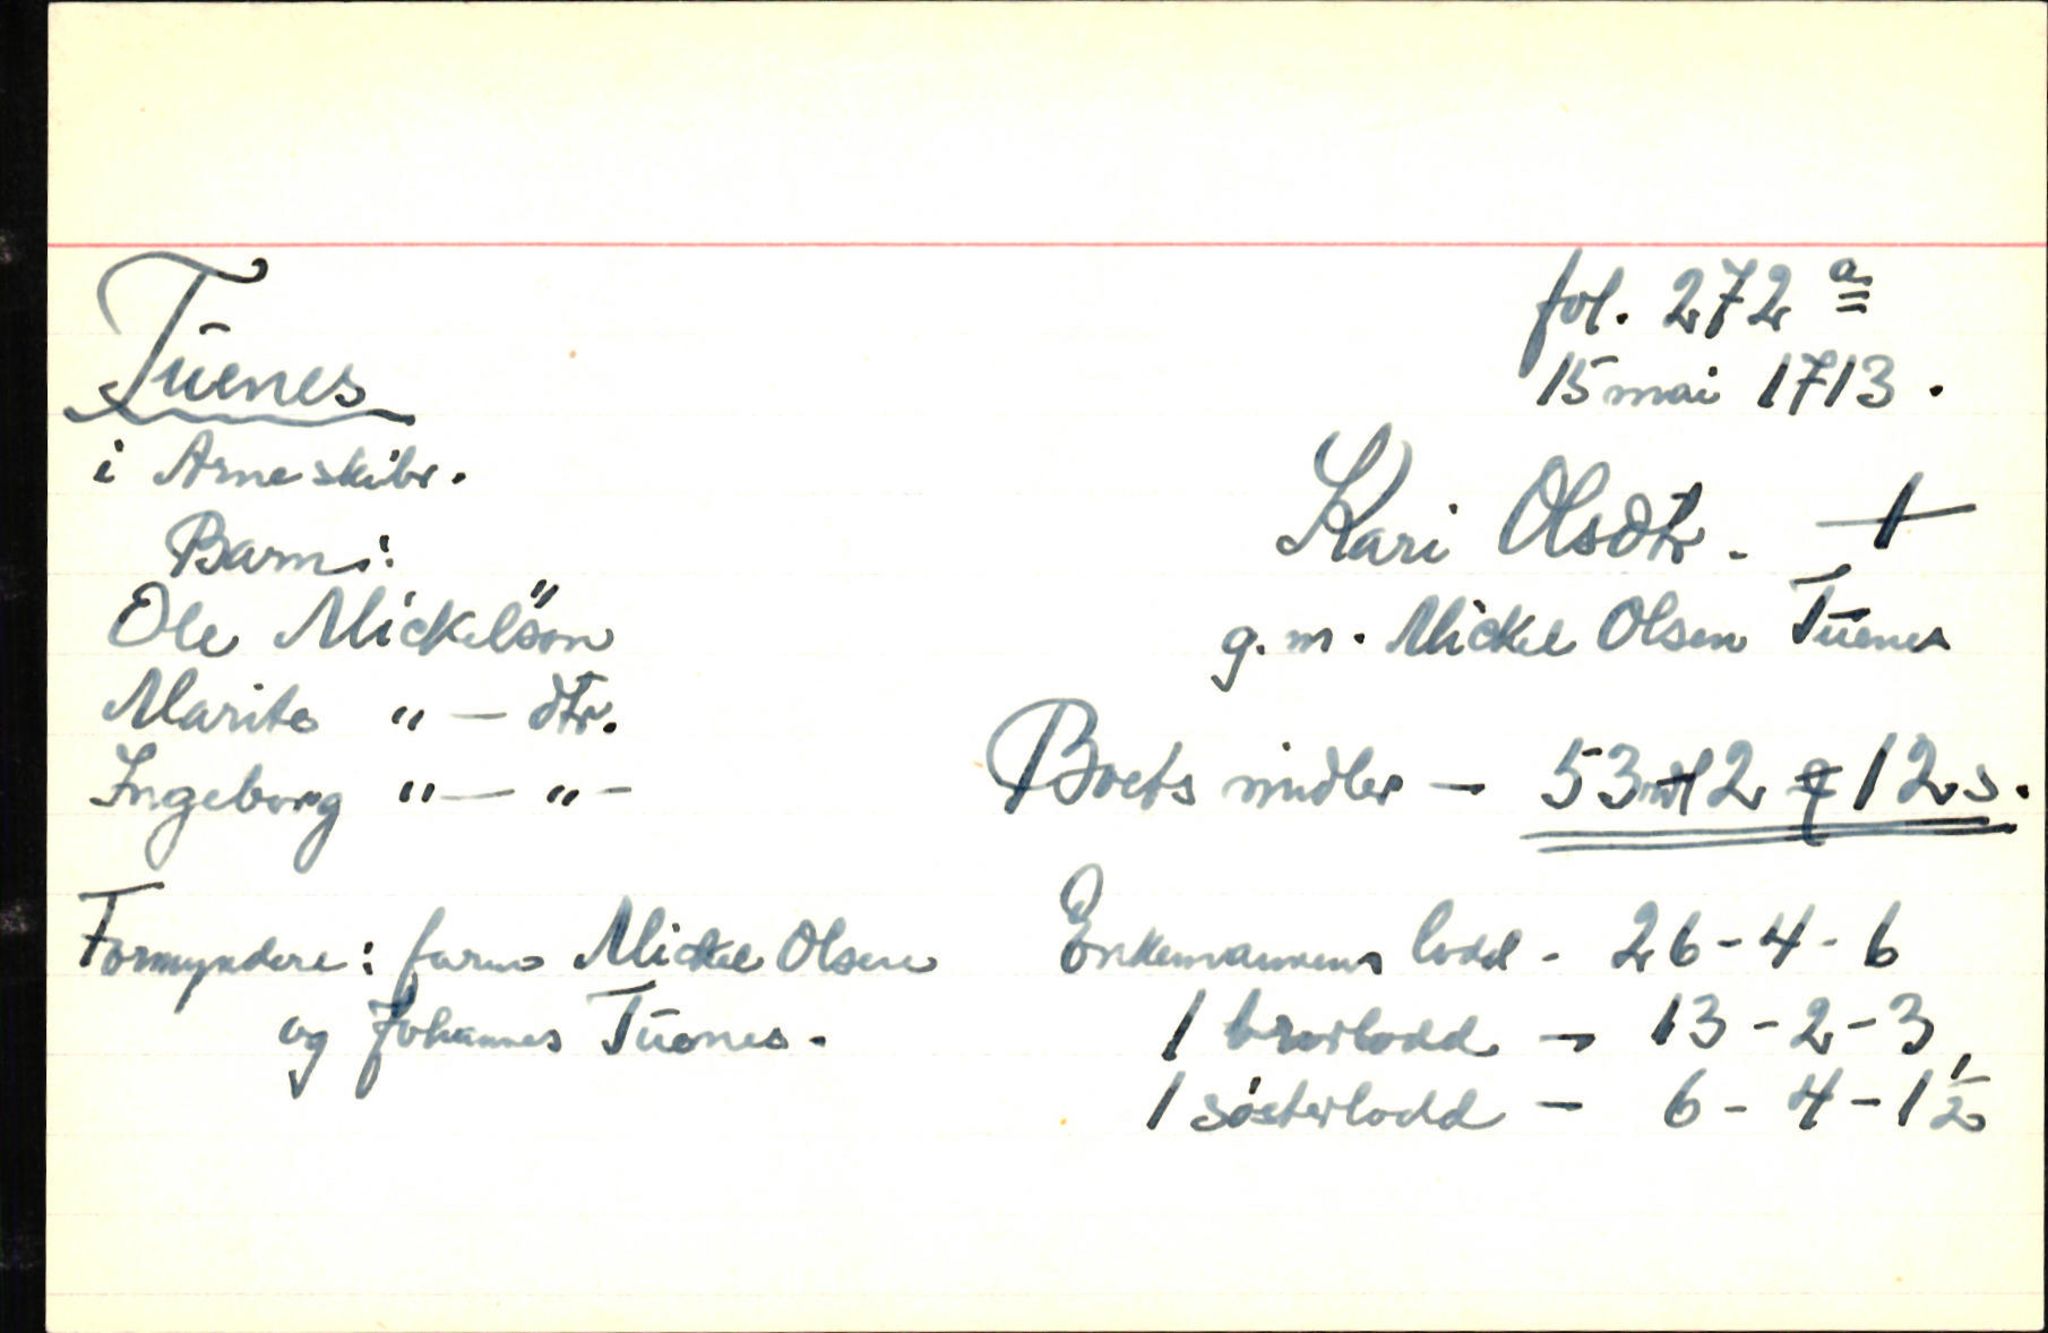 Tūenes
i Arne skibr.
Barn:
Ole Mickelsøn
Marite " — dtr.
Ingeborg " — " —
Formyndere: faren Mickel Olsen
og Johannes Tūenes.
fol. 272 a
15 mai 1713.
Kari Olsdtr. †
g. m. Mickel Olsen Tūenes
Boets midler — 53 rdl 2 ꝗ 12 s.
Enkemannens lodd - 26 - 4 - 6
1 brorlodd — 13 - 2 - 3
1 søsterlodd — 6 - 4 - 1 1/2